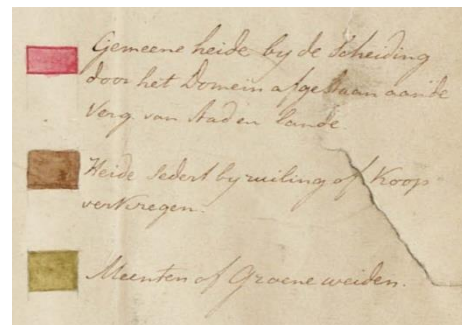 Gemeene heide by de Scheiding
door het Domein afgestaan aan de
Verg. van Stad en Lande.
Heide sedert by ruiling of Koop
verkregen.
Meenten of Groene weiden.